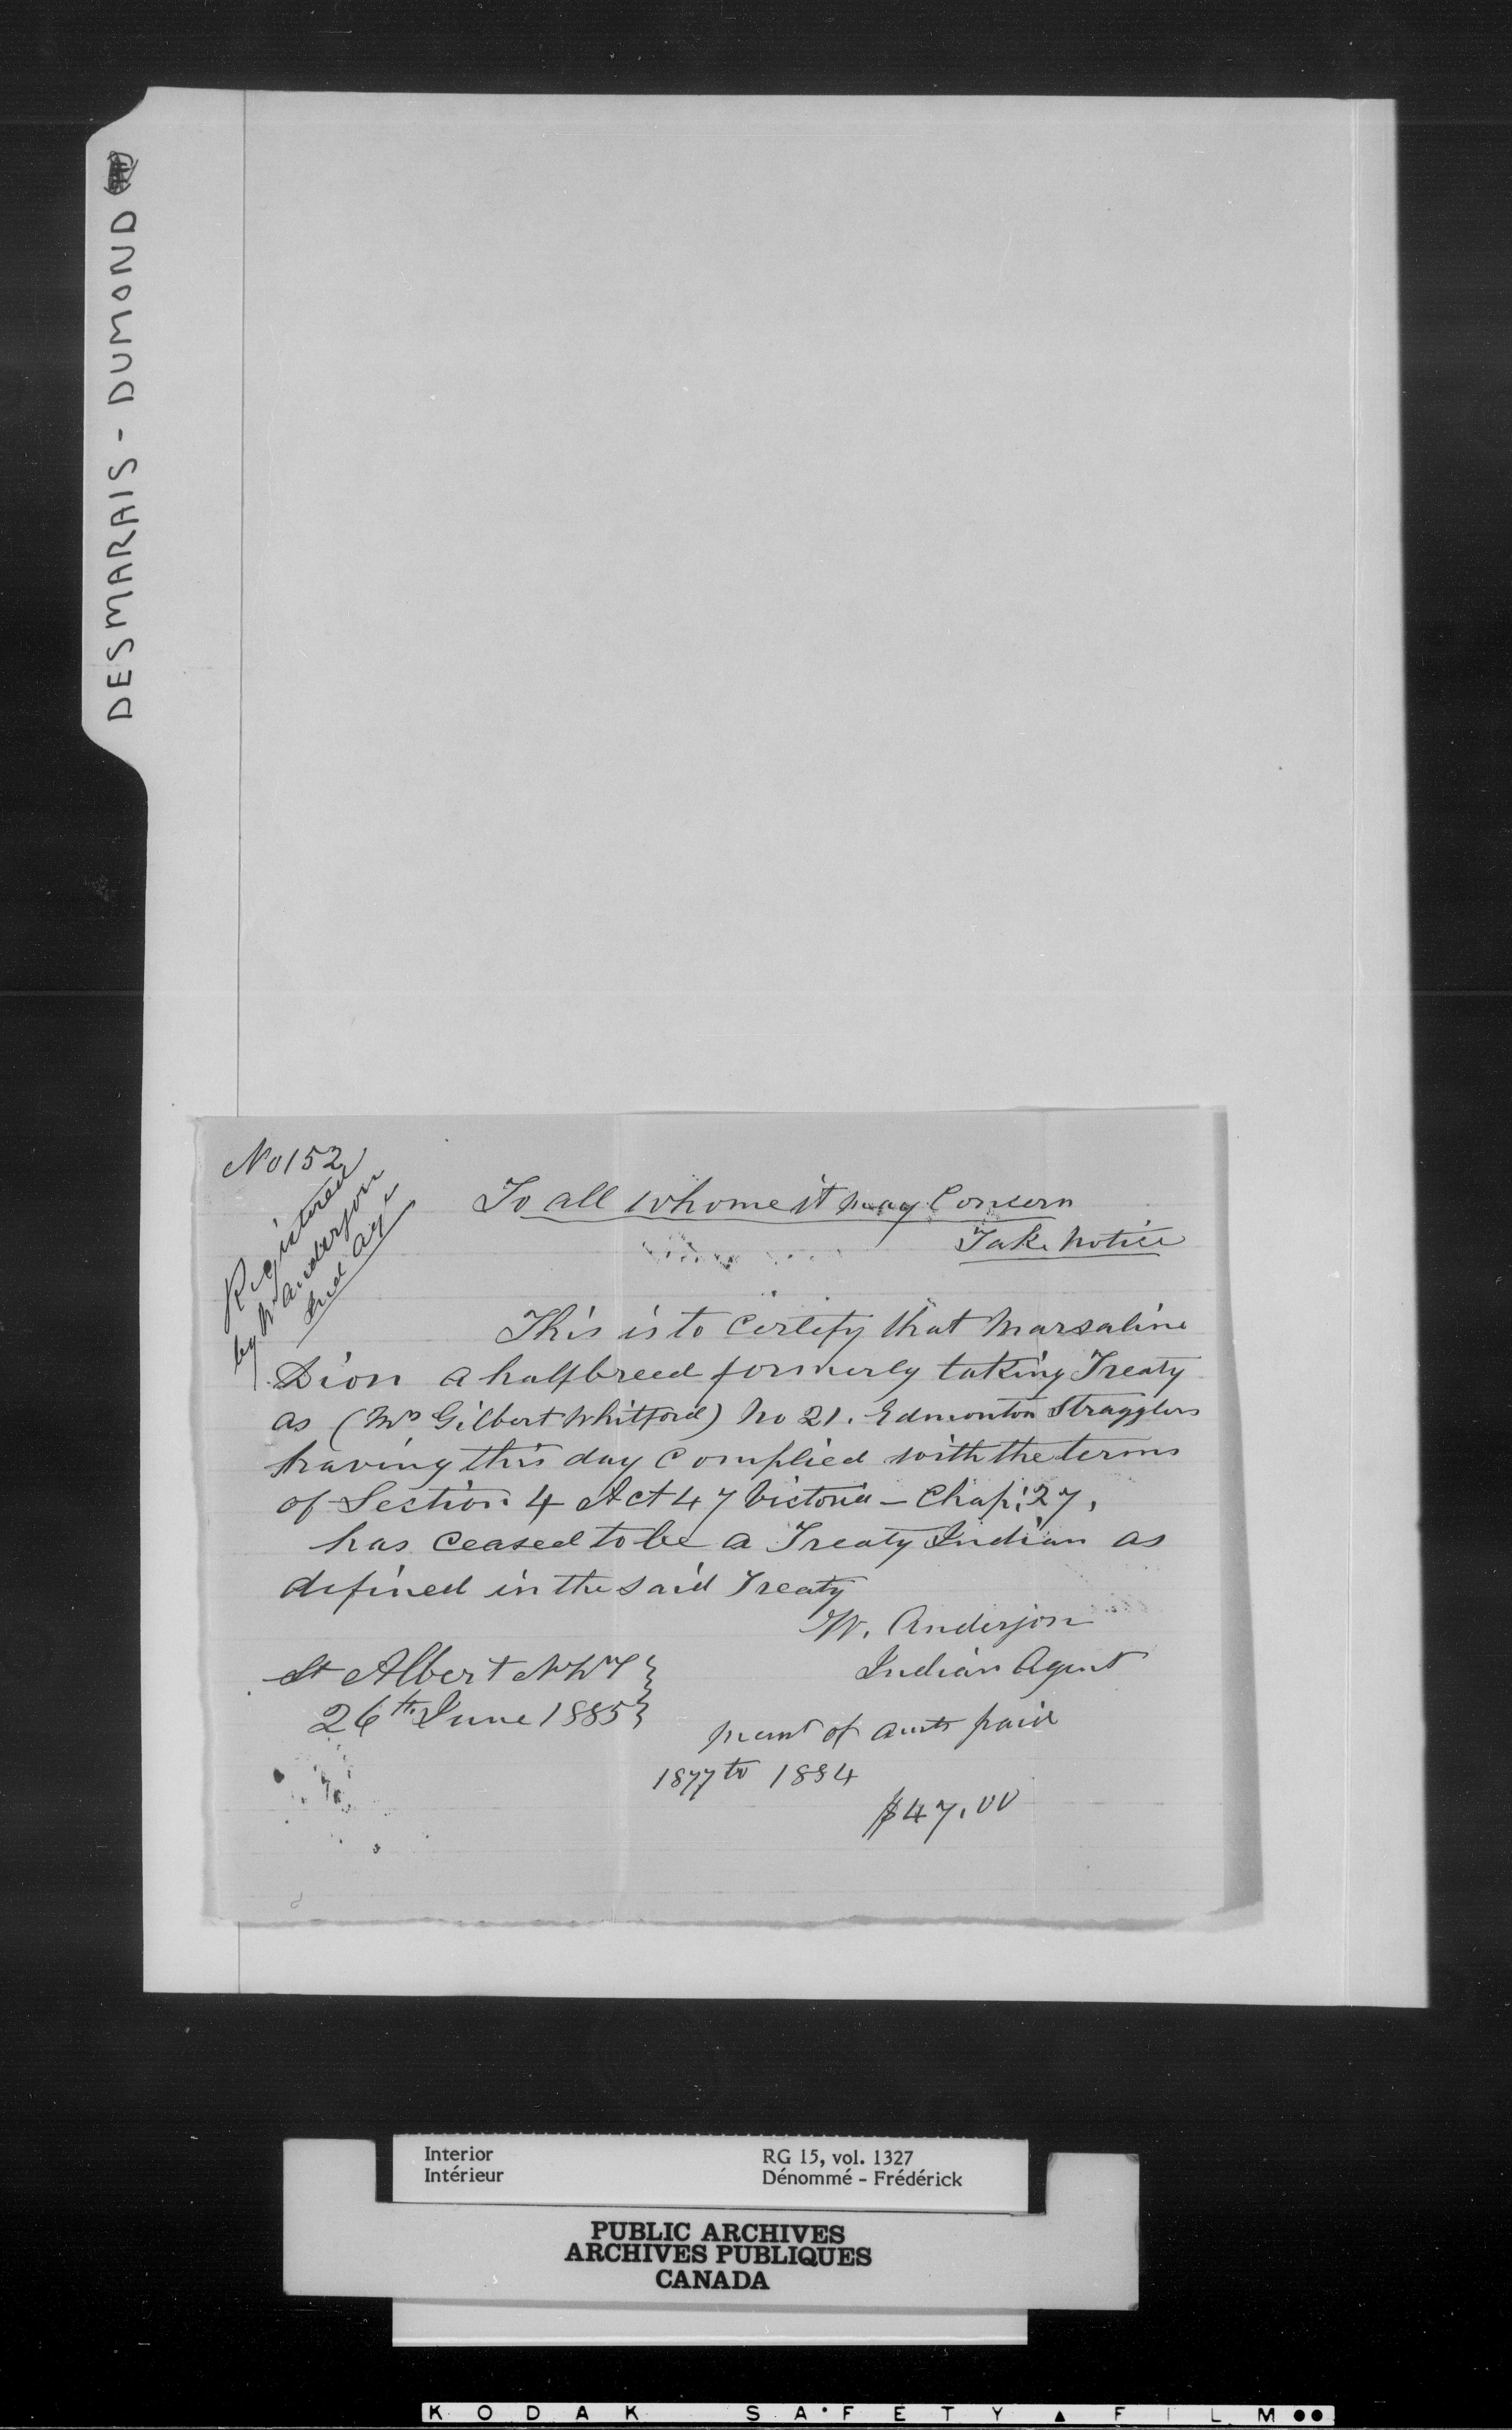 DESMARAIS - DUMOND
No 152
Registered
by W Anderson
Ind Agt
To all whome it may Concern
Take notice
This is to Certify that Marsaline
Dion a halfbreed formerly taking Treaty
as (Mrs Gilbert Whitford) No 21. Edmonton Stragglers
having this day Complied with the terms
of Section 4 Act 47 Victoria - Chap: 27,
has ceased to be a Treaty Indian as
defined in the said Treaty
W. Anderson
Indian Agent
St Albert NWT
26th June 1885
of amts paid
1877 to 1884
$47.00
Interior
Intérieur
RG 15, vol. 1327
Dénommé - Frédérick
PUBLIC ARCHIVES
ARCHIVES PUBLIQUES
CANADA
KODAK SAFETY FILM